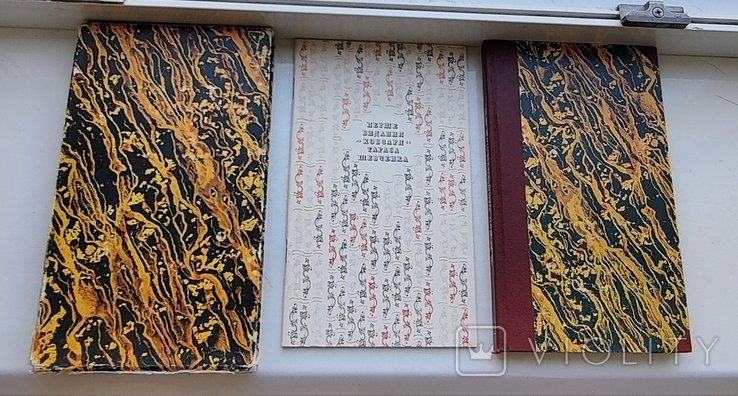 ПЕРШЕ
ВИДАННЯ
«КОБЗАРЯ»
ТАРАСА
ШЕВЧЕНКА
VIOLITY